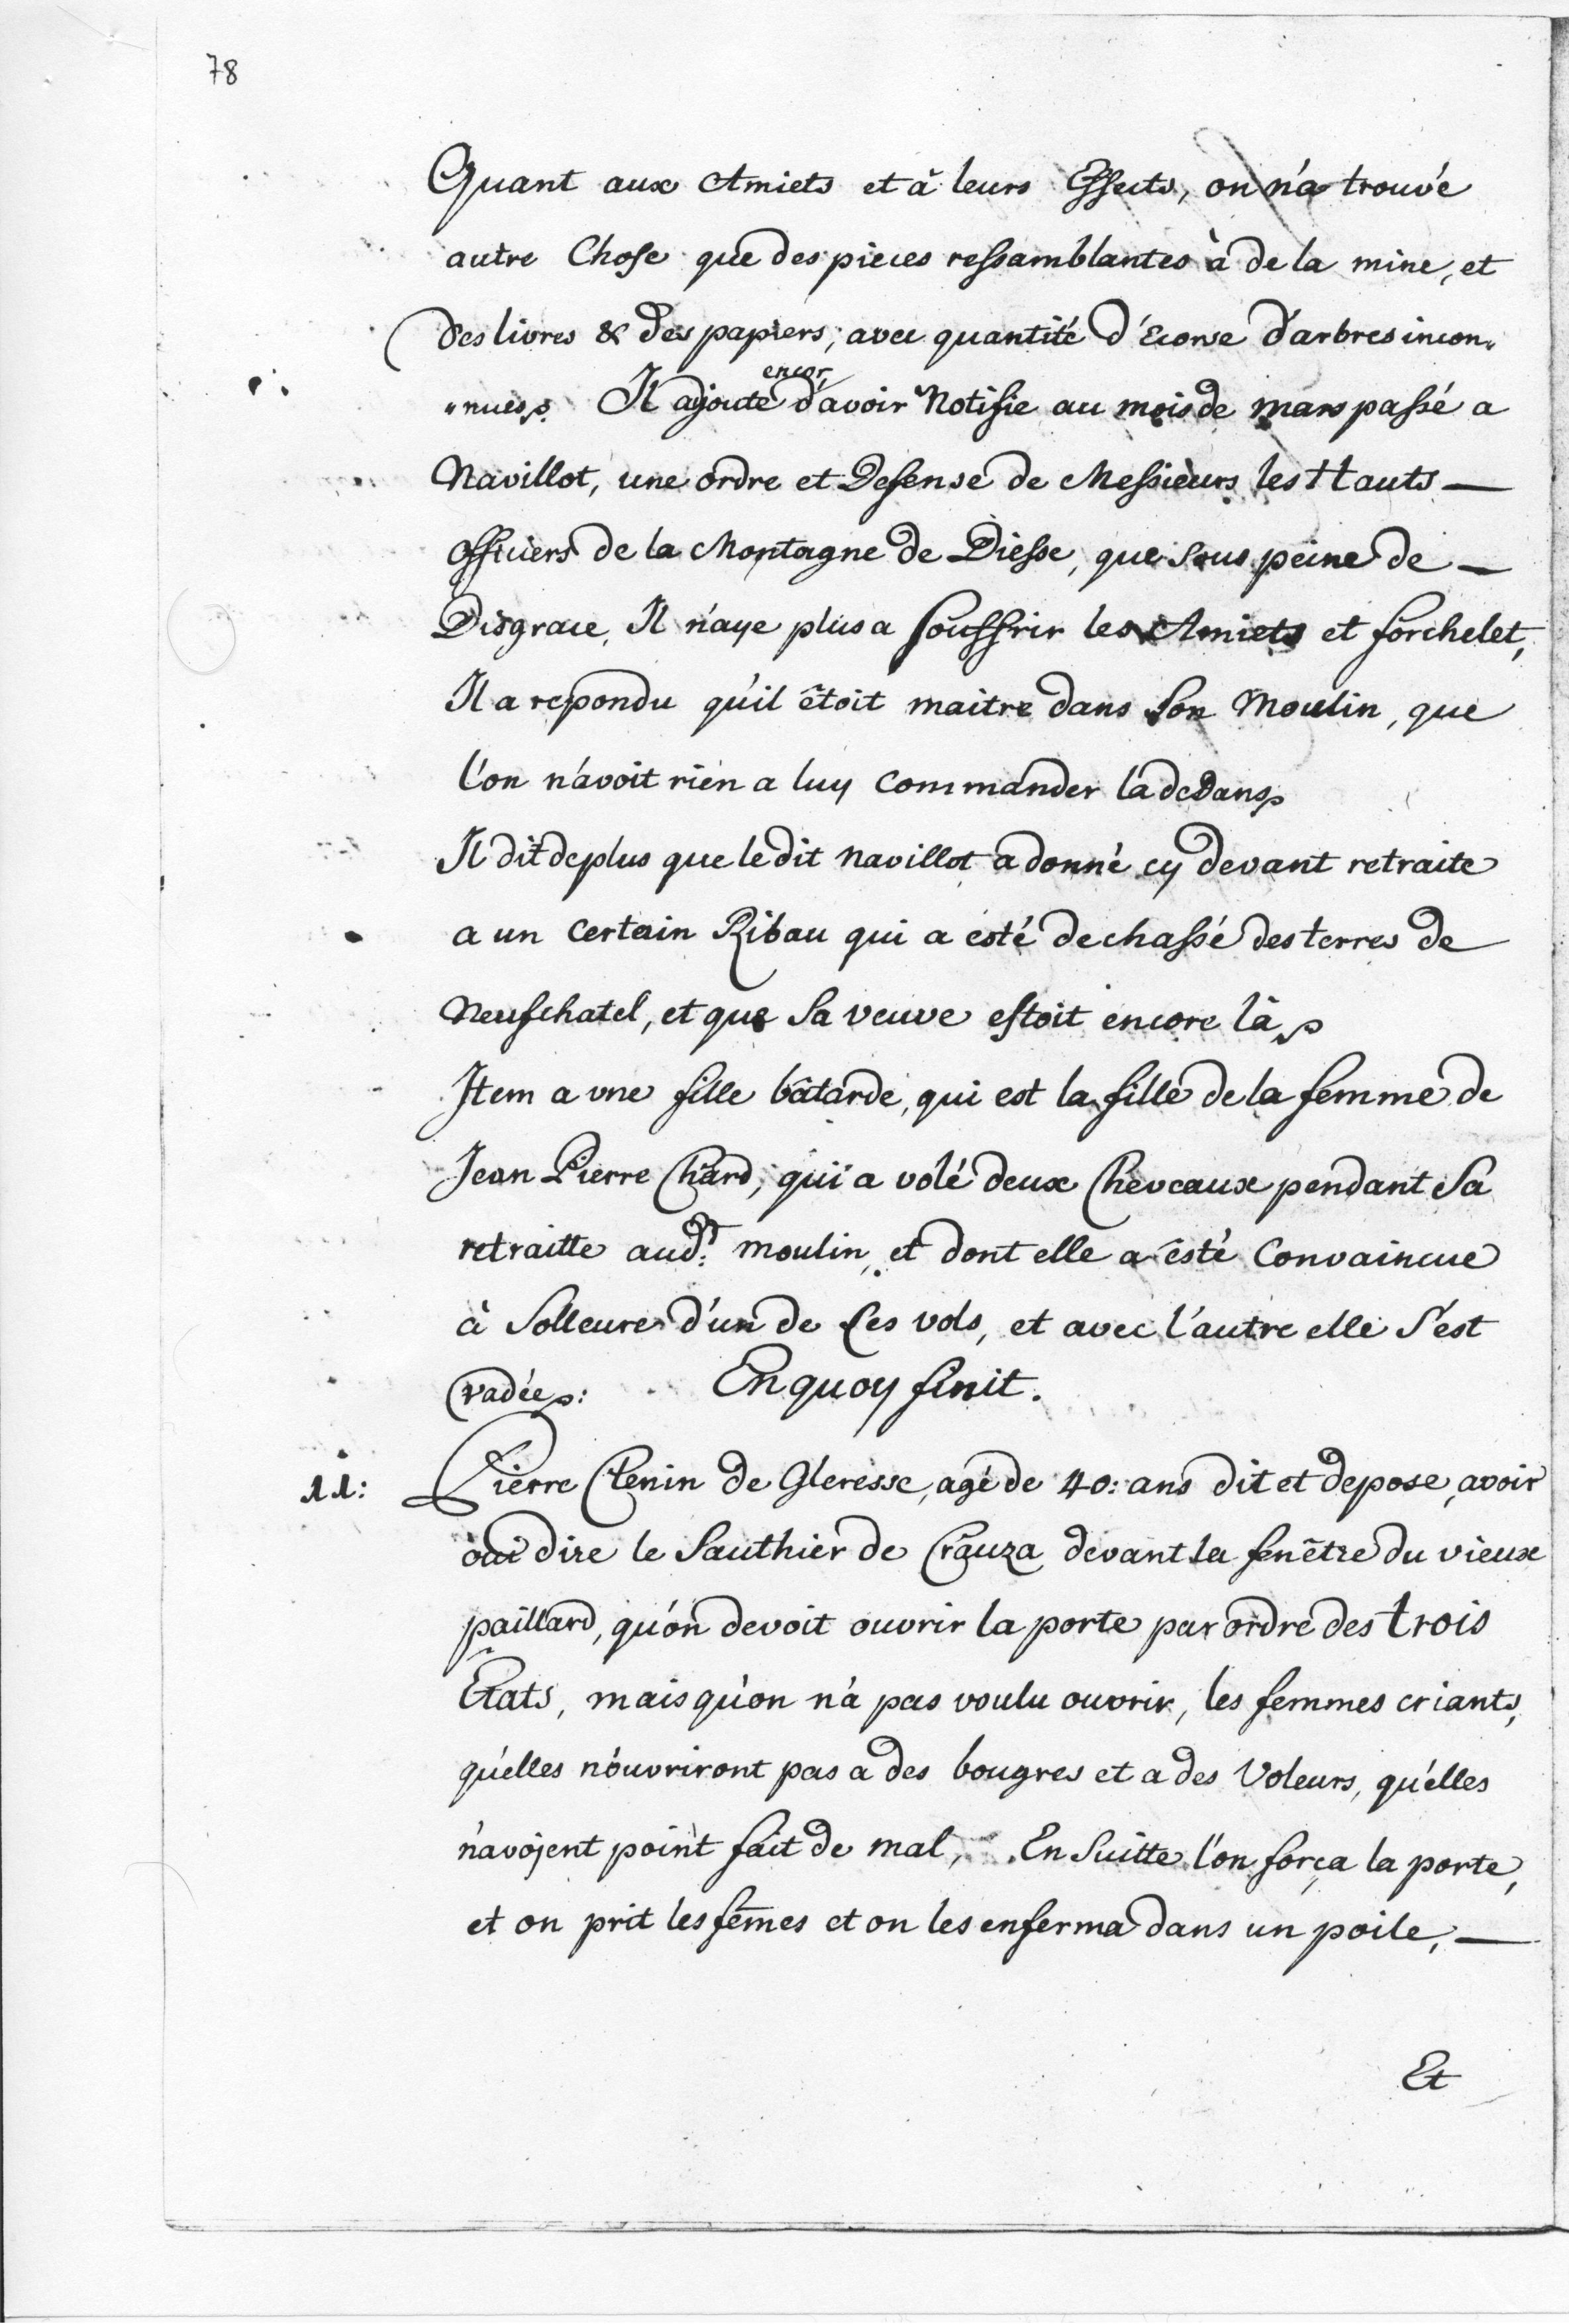 78
Quant aux Amiets et à leurs Effects, on n'a trouvé
autre Chose que des pieces ressamblantes à de la mine, et
des livres & des papiers, avec quantité d'Ecorse d'arbres incon„
„nues. Il ajoute encor d'avoir Notifie au mois de mars passé a
Navillot, une ordre et Defense de Messieurs les Hauts —
officiers de la Montagne de Diesse, que sous peine de —
Disgrace, Il n'aye plus a souffrir les Amiets et forchelet,
Il a repondu qu'il êtoit maitre dans son Moulin, que
l'on n'avoit rien a luy commander là dedans
Il dit deplus que le dit navillot a donné cy devant retraite
a un certain Ribau qui a esté dechassé des terres de
Neufchatel, et que sa veuve estoit encore là
Item a une fille bâtarde, qui est la fille de la femme de
Jean Pierre Chard, qui a volé deux Cheveaux pendant sa
retraitte aud.t moulin, et dont elle a esté Convaincue
à Solleure d'un de ses vols, et avec l'autre elle s'est
Evadée: En quoy finit.
11: Pierre Clenin de Gleresse, agé de 40: ans dit et depose, avoir
oui dire le Sauthier de Crauza devant la fenêtre du vieux
paillard, qu'on devoit ouvrir la porte par ordre des trois
Etats, mais qu'on n'a pas voulu ouvrir, les femmes criants,
qu'elles n'ouvriront pas a des bougres et a des Voleurs, qu'elles
n'avojent point fait de mal, En suitte l'on força la porte,
et on prit les fem̄es et on les enferma dans un poile, —
Et